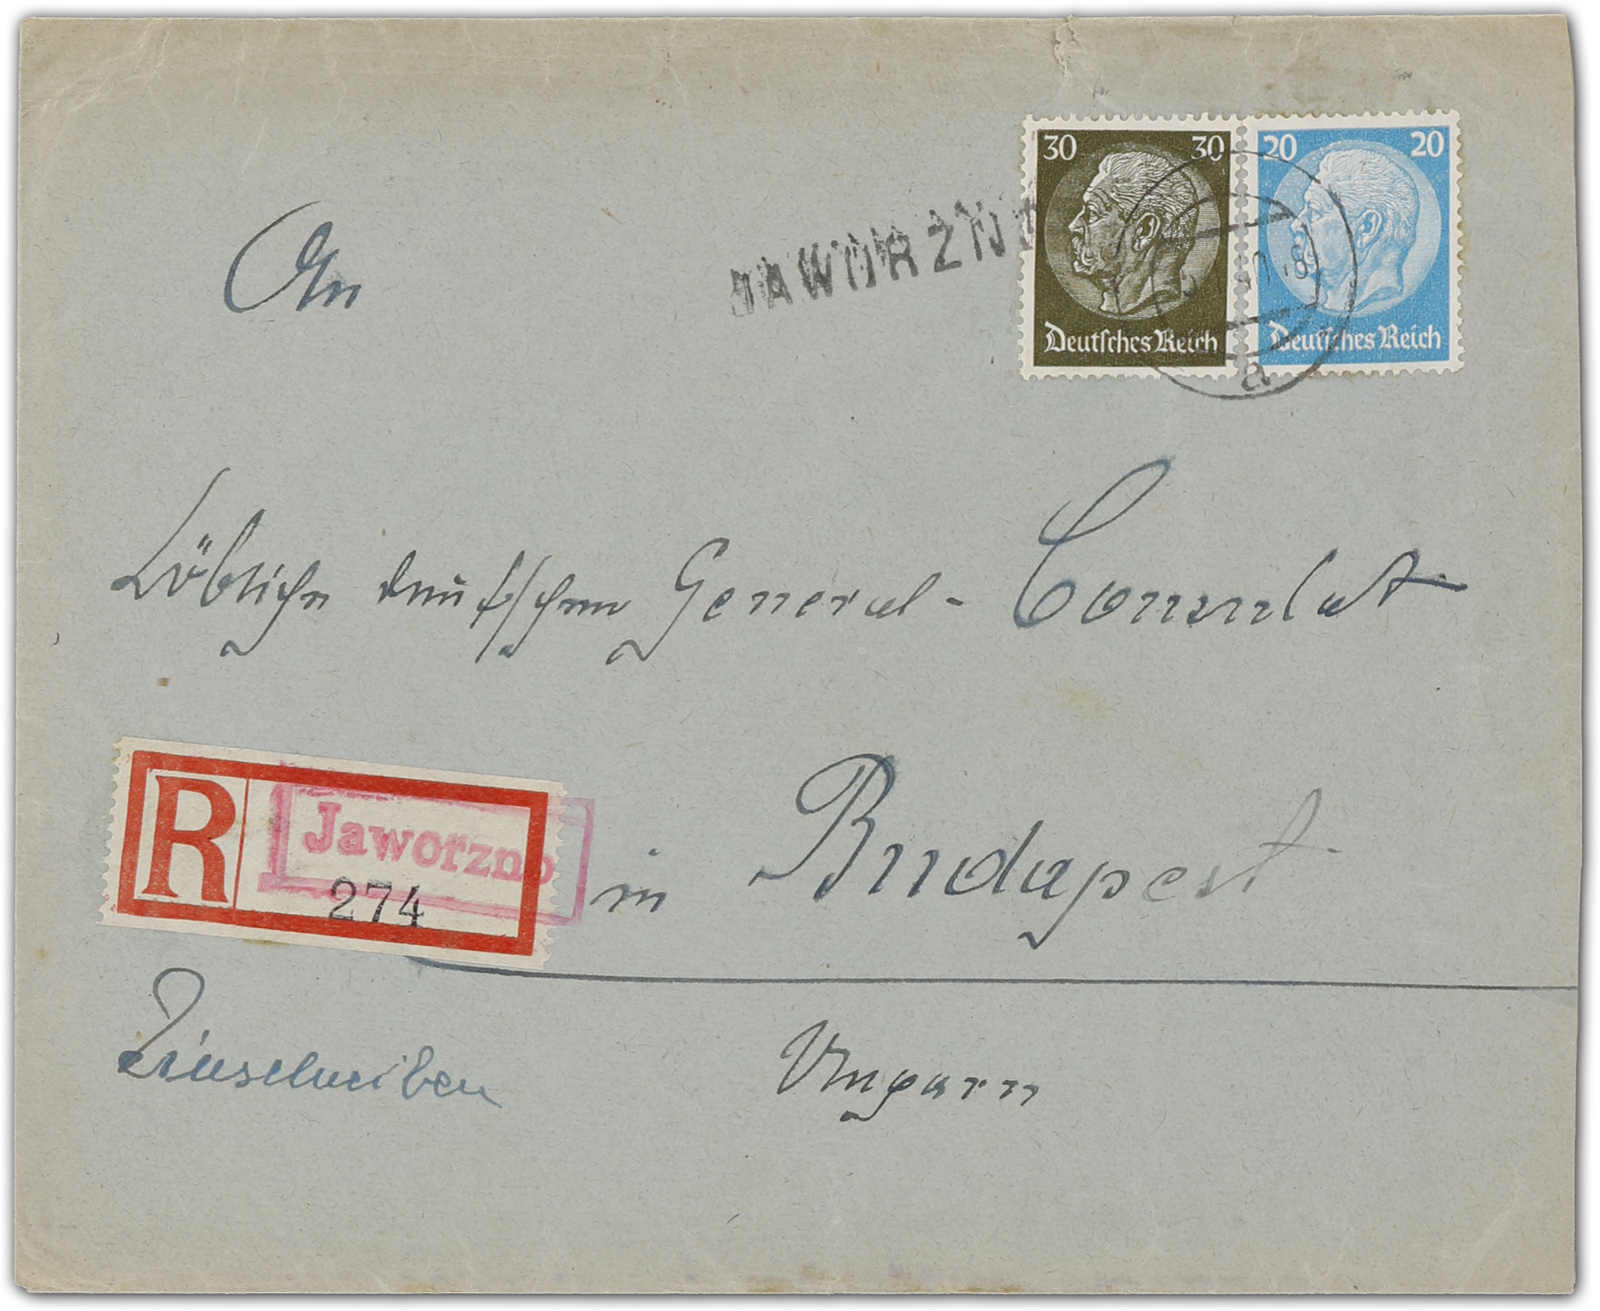 30 30
Deutsches Reich
20 20
Deutsches Reich
JAWORZNO
a
An
Löbliche deutschen General-Consulat
R
Jaworzno
274
in Budapest
Einschreiben
Ungarn